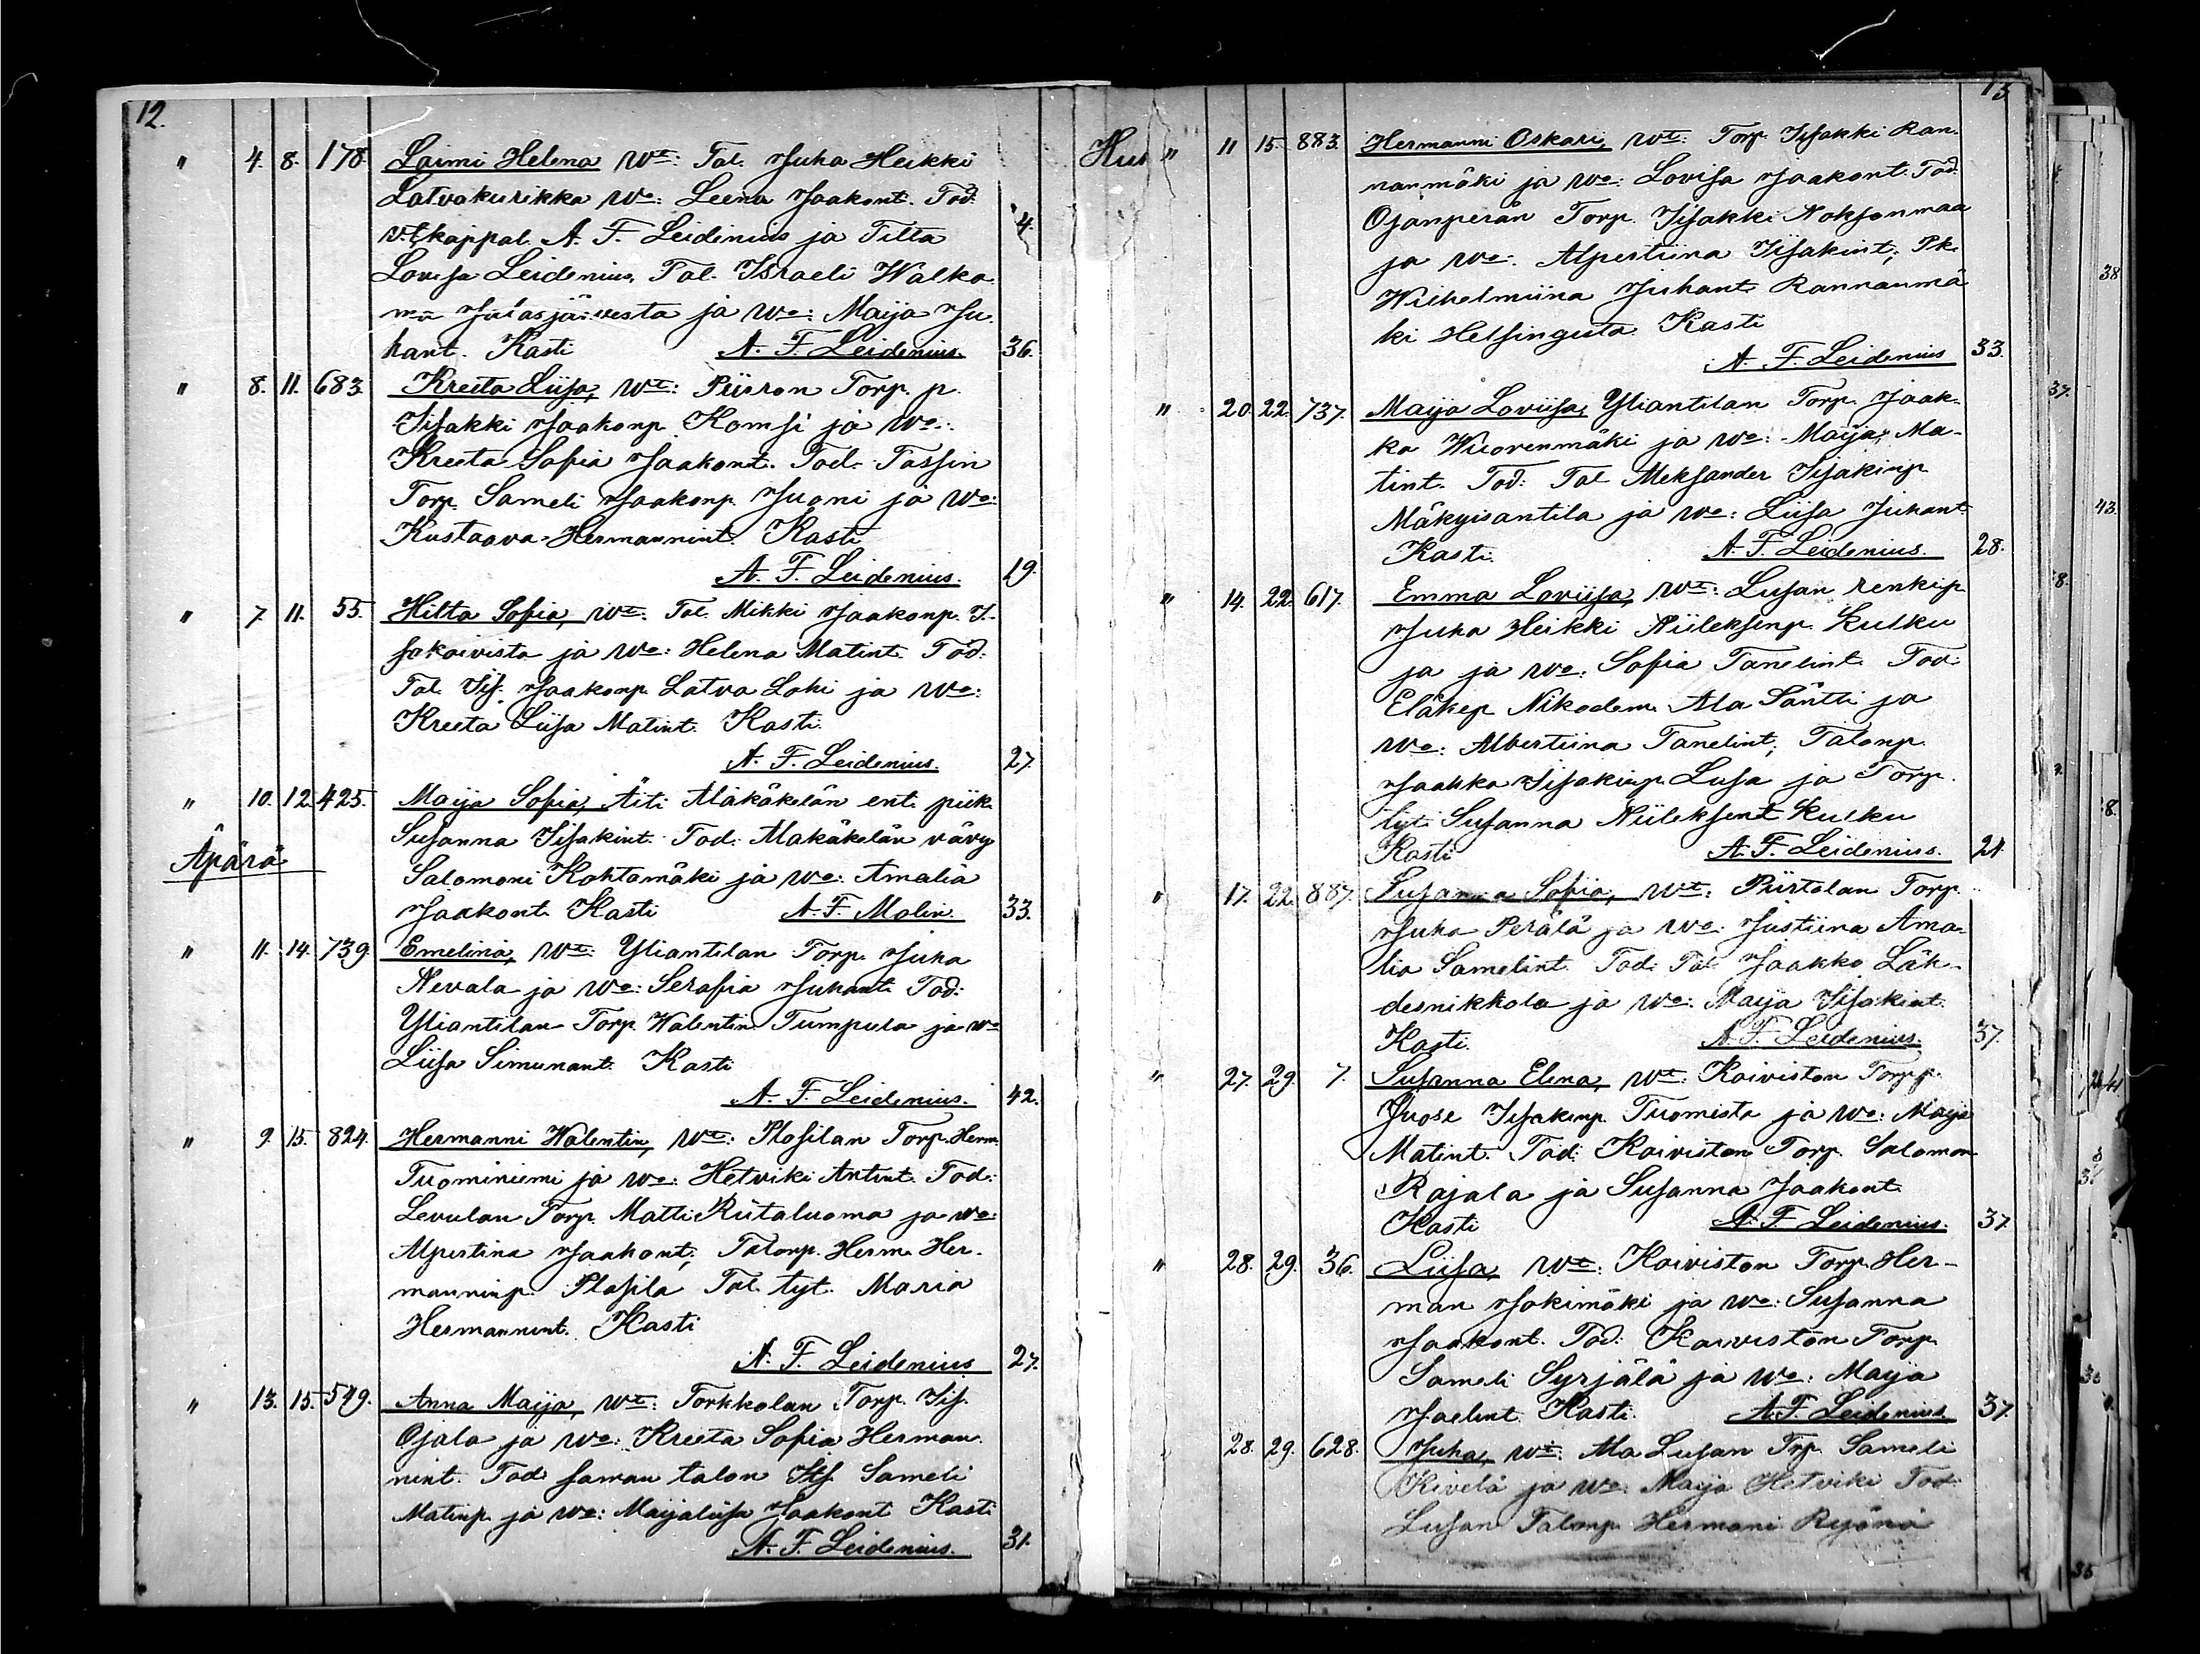 12.
" 4. 8. 178. Laimi Helena Wt: Tal. Juha Heikki
Latvakurikka Wo: Leena Jaakont. Tod:
v.t. kappal. A. F. Leidenius ja Tilta 4.
Lovisa Leidenius, Tal. Israeli Walka
ma Jalasjärvesta ja Wo: Maija Ju-
hant. Kasti A. F. Leidenius. 36.
" 8. 11. 683. Kreeta Liisa, Wt: Piirron Torp. p.
Iisakki Jaakonp. Komsi ja Wo:
Kreeta Sofia Jaakont. Tod. Tassin
Torp. Sameli Jaakonp. Juoni ja Wo:
Kustaava Hermannint. Kasti
A. F. Leidenius. 19.
" 7. 11. 55. Hilta Sofia, Wt: Tal. Mikki Jaakonp. I-
sokoivisto ja Wo: Helena Matint. Tod:
Tal. Iis. Jaakonp. Latva Lohi ja Wo:
Kreeta Liisa Matint. Kasti
A. F. Leidenius. 27.
" 10. 12. 425. Maija Sofia, Äiti Alakäkelän ent. piik.
Äpärä Susanna Iisakint. Tod: Alakäkelän vävy
Salomoni Kohtamäki ja Wo: Amalia
Jaakont. Kasti A. F. Molin. 33.
" 11. 14. 739. Emelina, Wt: Yliantilan Torp. Juha
Nevala ja Wo: Serafia Juhant. Tod:
Yliantilan Torp. Walentin Tumpula ja Wo
Liisa Simunant. Kasti
A. F. Leidenius. 42.
" 9. 15. 824. Hermanni Walentin, Wt: Plosilan Torp. Herm.
Tuominiemi ja Wo: Hetviki Antint. Tod:
Levulan Torp. Matti Riitaluoma ja Wo:
Alpertina Jaakont; Talonp. Herm. Her-
manninp. Plosila Tal. tyt. Maria
Hermannint. Kasti
A. F. Leidenius 27.
" 13. 15. 549. Anna Maija, Wt: Torkkolan Torp. Iis.
Ojala ja Wo: Kreeta Sofia Herman-
nint. Tod: saman talon Its. Sameli
Matinp. ja Wo: Maijaliisa Jaakont Kasti
A. F. Leidenius. 31.
13
" 11 15. 883. Hermanni Oskari, Wt: Torp. Iisakki Ran-
nanmäki ja Wo: Lovisa Jaakont. Tod.
Ojanperän Torp. Iisakki Noksonmaa
ja Wo: Alpertiina Iisakint; Pk.
Wilhelmiina Juhant. Rannanmä
ki Helsingista. Kasti
A. F. Leidenius 33.
" 20. 22. 737. Maija Loviisa, Yliantilan Torp. Jaak-
ko Wuorenmäki ja Wo: Maija Ma-
tint. Tod: Tal Aleksander Iisakinp.
Mäkyisantila ja Wo: Liisa Juhant.
Kasti. A. F. Leidenius. 28.
" 14. 22. 617. Emma Loviisa, Wt: Lusan renkip.
Juha Heikki Niileksenp. Kulku
ja ja Wo: Sofia Tanelint. Tod:
Eläkep. Nikodem. Ala Säntti ja
Wo: Albertiina Tanelint; Talonp.
Jaakko Iisakinp. Lusa ja Torp.
tyt. Susanna Niileksent Kulku
Kasti A. F. Leidenius. 24.
" 17. 22. 887. Susanna Sofia, Wt: Piirtolan Torp.
Juha Perälä ja Wo: Justiina Ama-
lia Samelint. Tod: Tal Jaakko Läh-
desnikkola ja Wo: Maija Iisakint.
Kasti. A. F. Leidenius. 37.
" 27. 29. 7. Susanna Elena, Wt: Koiviston Torp p.
Juose Iisakinp. Tuomisto ja Wo: Maija
Matint. Tod: Koiviston Torp. Salomon
Rajala ja Susanna Jaakont.
Kasti A. F. Leidenius. 37.
" 28. 29. 36. Liisa, Wt: Koiviston Torp. Her-
man Jokimäki ja Wo: Susanna
Jaakont. Tod: Koiviston Torp.
Sameli Syrjälä ja Wo: Maija
Joelint. Kasti. A. F. Leidenius 37.
28. 29. 628. Juha, Wt: Ala Lusan Trp. Sameli
Kivelä ja Wo: Maija Hetviki Tod:
Lusan Talonp. Hermani Ryönä